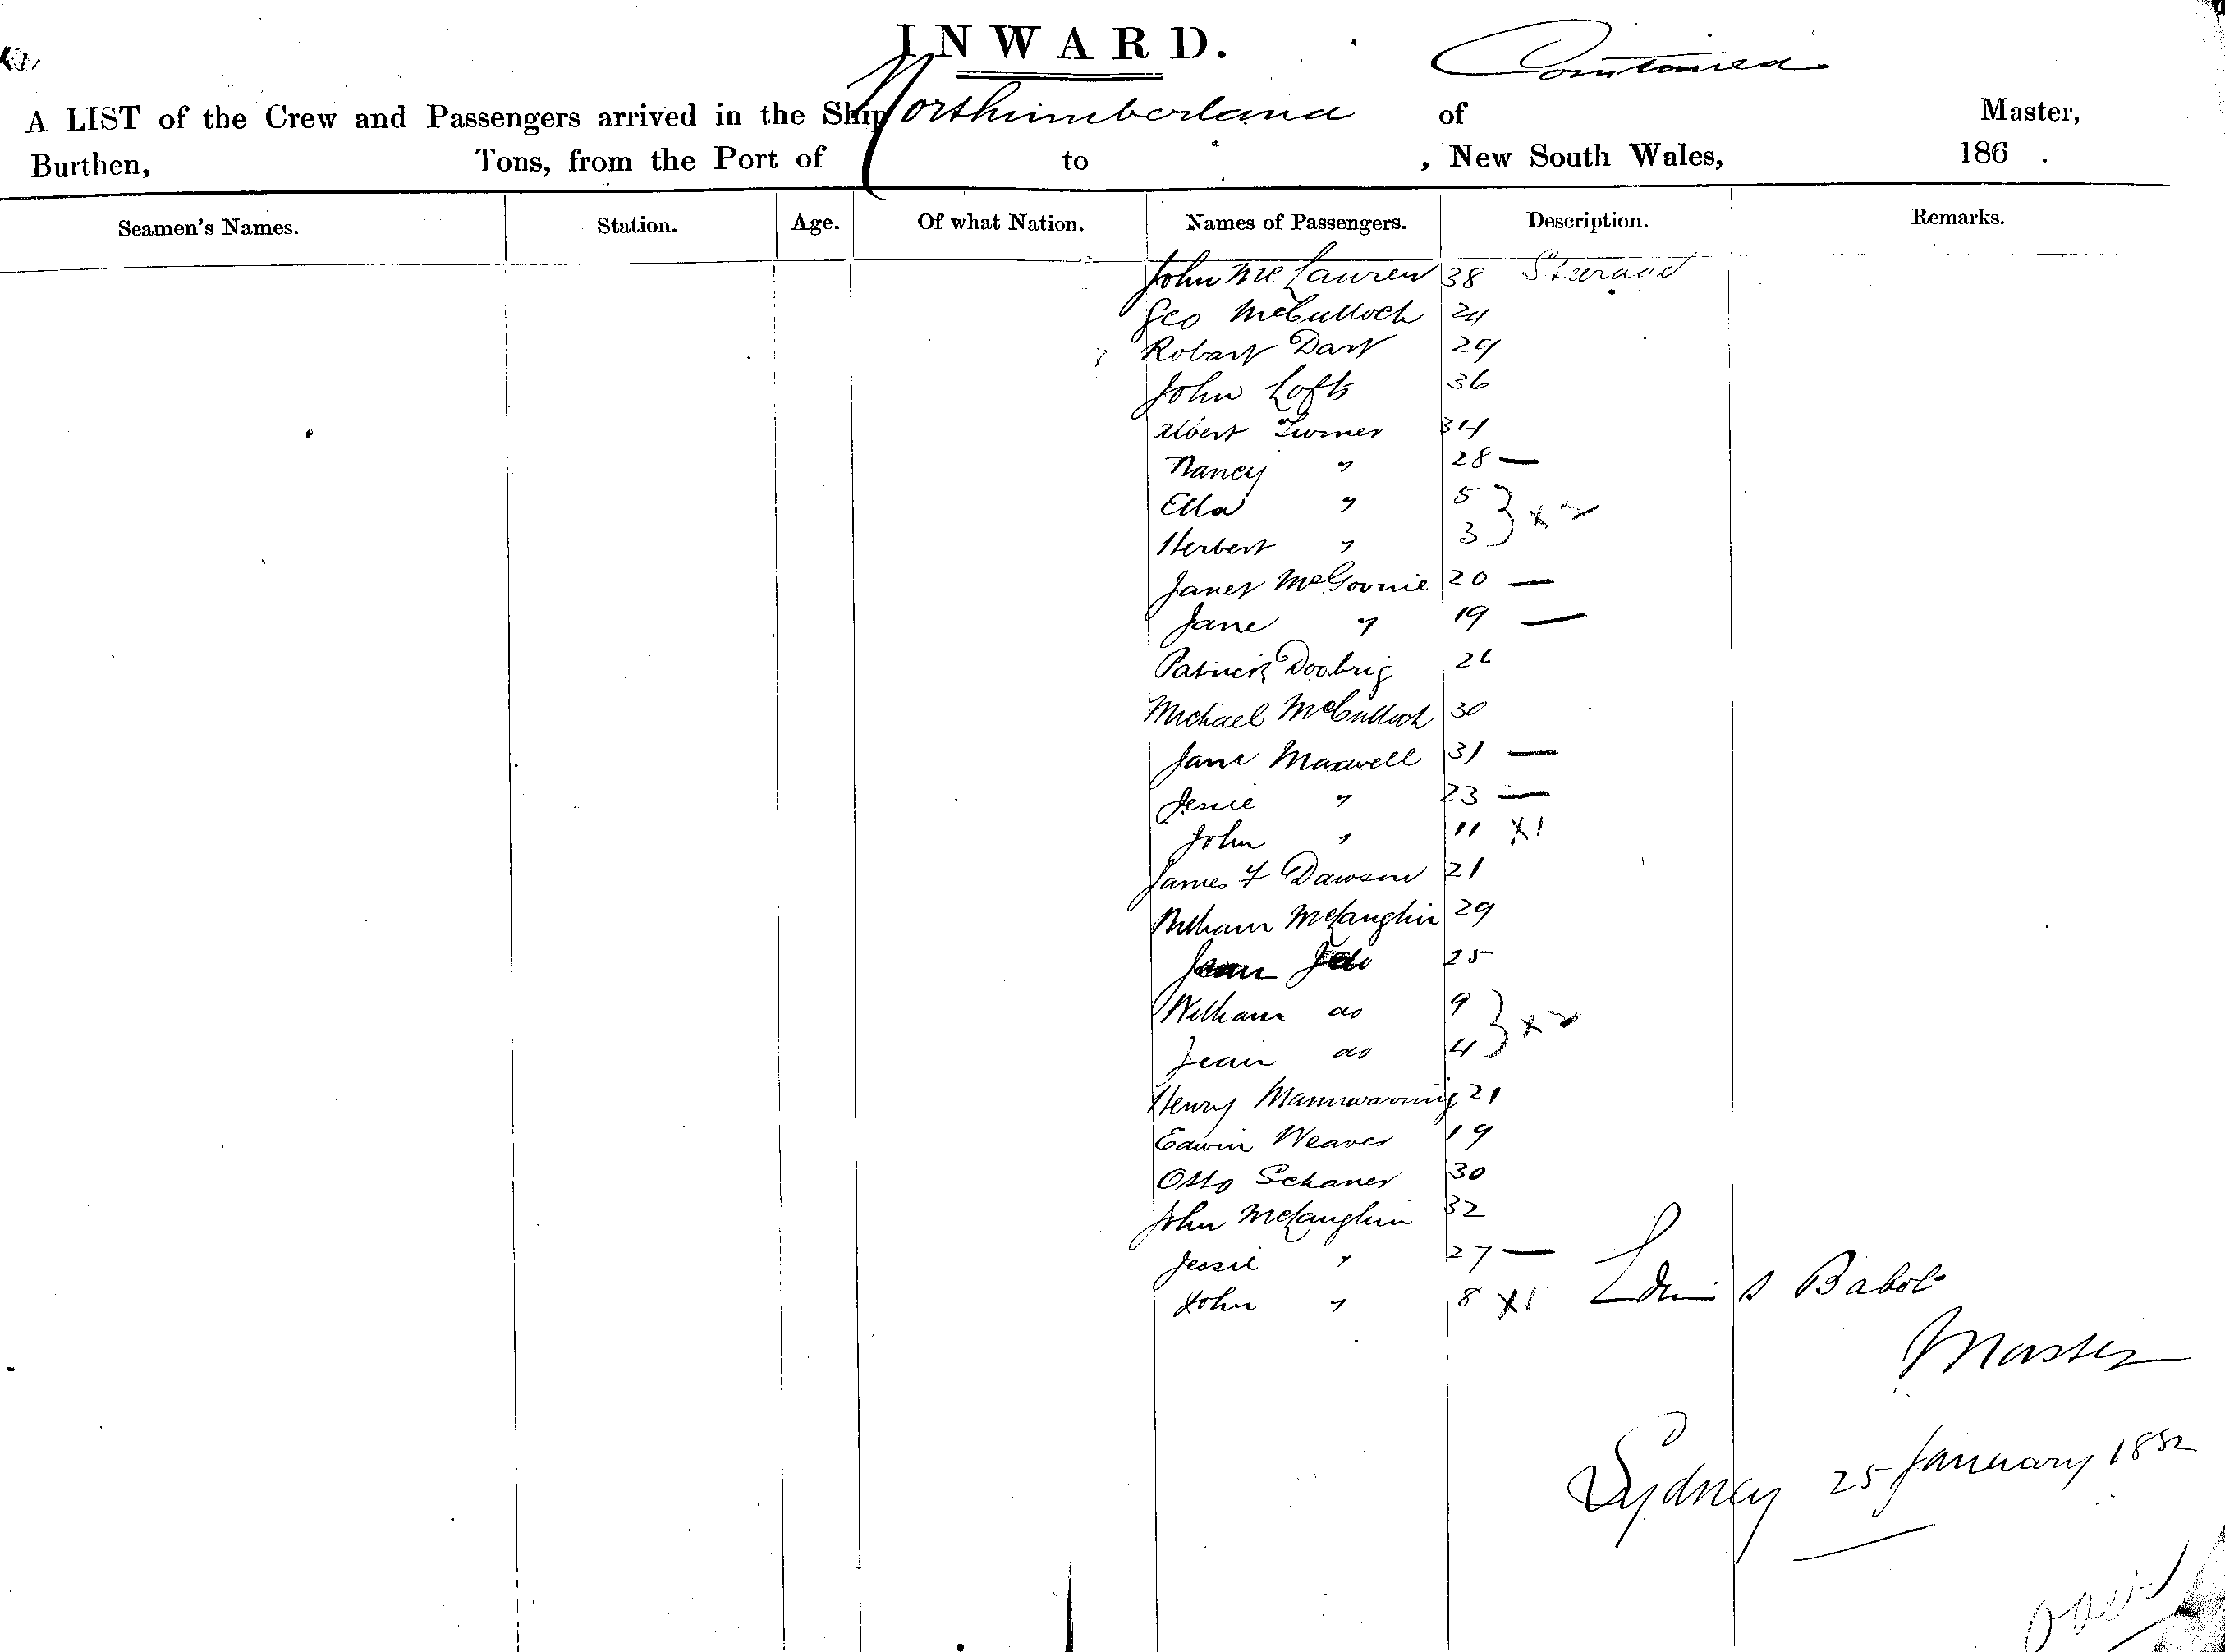 INWARD.
Continued
A LIST of the Crew and Passengers arrived in the Ship Northumberland of Master,
Burthen, Tons, from the Port of to , New South Wales, 186 .
Seamen's Names. Station. Age. Of what Nation. Names of Passengers. Description. Remarks.
John McLauren 38 Steerage
Geo McCulloch 24
Robart Dart 29
John Lofts 36
Albert Turner 34
Nancy " 28 —
Ella " 5 } x 2
Herbert " 3
Janet McGovnie 20 —
Jane " 19 —
Patrick 26
Michael McCulloch 30
Jane Maxwell 31 —
Jessie " 23 —
John " 11 X1
James F Dawson 21
William McLaughlin 29
Jean do 25
William do 9 } x 2
Jean do 4
Henry Mannwarring 21
Edwin Weaver 19
Otto Schaner 30
John McLaughlin 32
Jessie " 27 —
John " 8 X1
Babot
Master
Sydney 25 January 1882